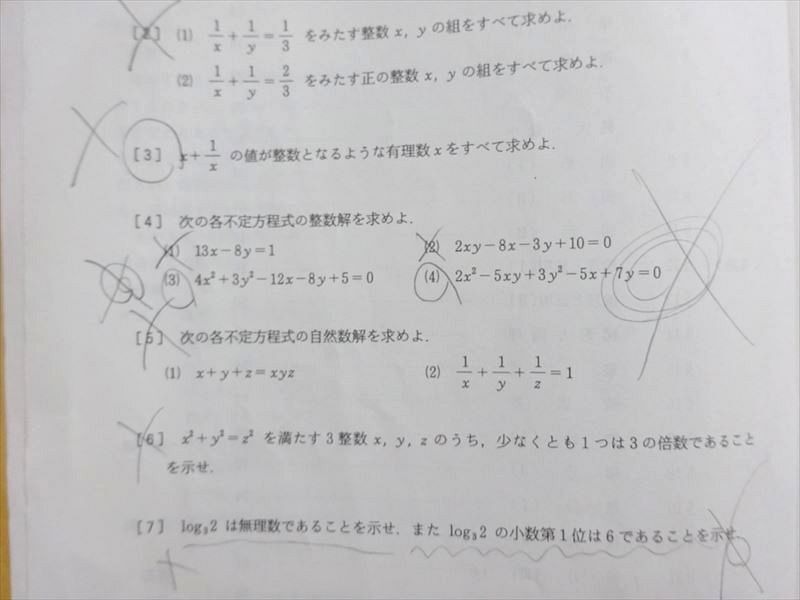 [2] (1) 1/x + 1/y = 1/3 をみたす整数 x, y の組をすべて求めよ.
(2) 1/x + 1/y = 2/3 をみたす正の整数 x, y の組をすべて求めよ.
[3] x + 1/x の値が整数となるような有理数 x をすべて求めよ.
[4] 次の各不定方程式の整数解を求めよ.
(1) 13x−8y=1 (2) 2xy−8x−3y+10=0
(3) 4x²+3y²−12x−8y+5=0 (4) 2x²−5xy+3y²−5x+7y=0
[5] 次の各不定方程式の自然数解を求めよ.
(1) x+y+z=xyz (2) 1/x + 1/y + 1/z = 1
[6] x²+y²=z² を満たす3整数 x, y, z のうち, 少なくとも1つは3の倍数であること
を示せ.
[7] log₃2 は無理数であることを示せ. また log₃2 の小数第1位は6であることを示せ.